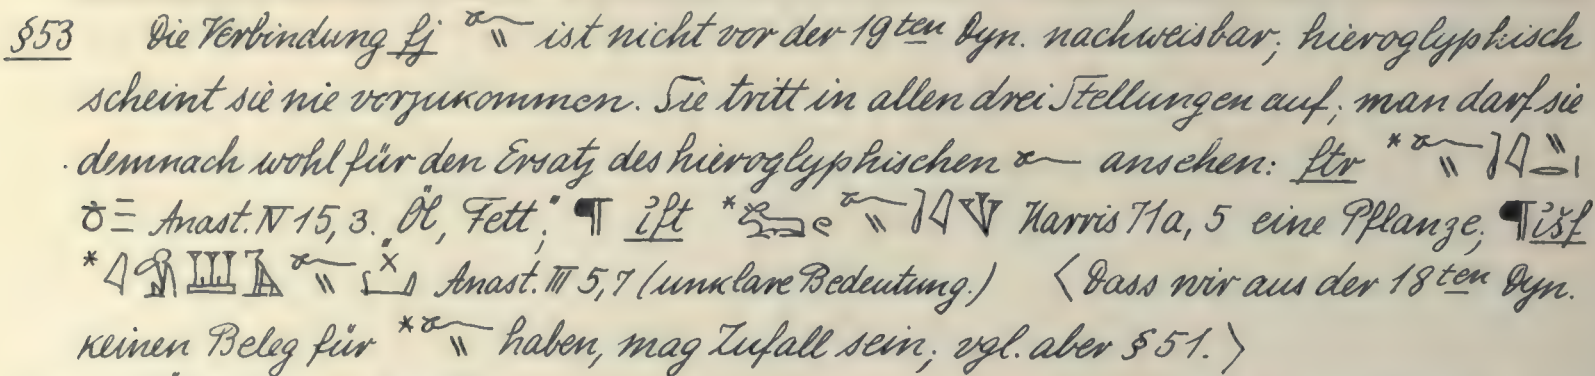 §53 Die Verbindung fj 𓆑𓏭 ist nicht vor der 19ten Dyn. nachweisbar; hieroglyphisch
scheint sie nie vorzukommen. Sie tritt in allen drei Stellungen auf; man darf sie
demnach wohl für den Ersatz des hieroglyphischen 𓆑 ansehen: ftr *𓆑𓏭
Anast. IV 15,3. „Öl, Fett“; ¶ ift * 𓆑𓏭 Harris 71a, 5 eine Pflanze; ¶ išf
* 𓆑𓏭 Anast. III 5,7 (unklare Bedeutung.) ⟨Dass wir aus der 18ten Dyn.
keinen Beleg für *𓆑𓏭 haben, mag Zufall sein; vgl. aber §51.⟩